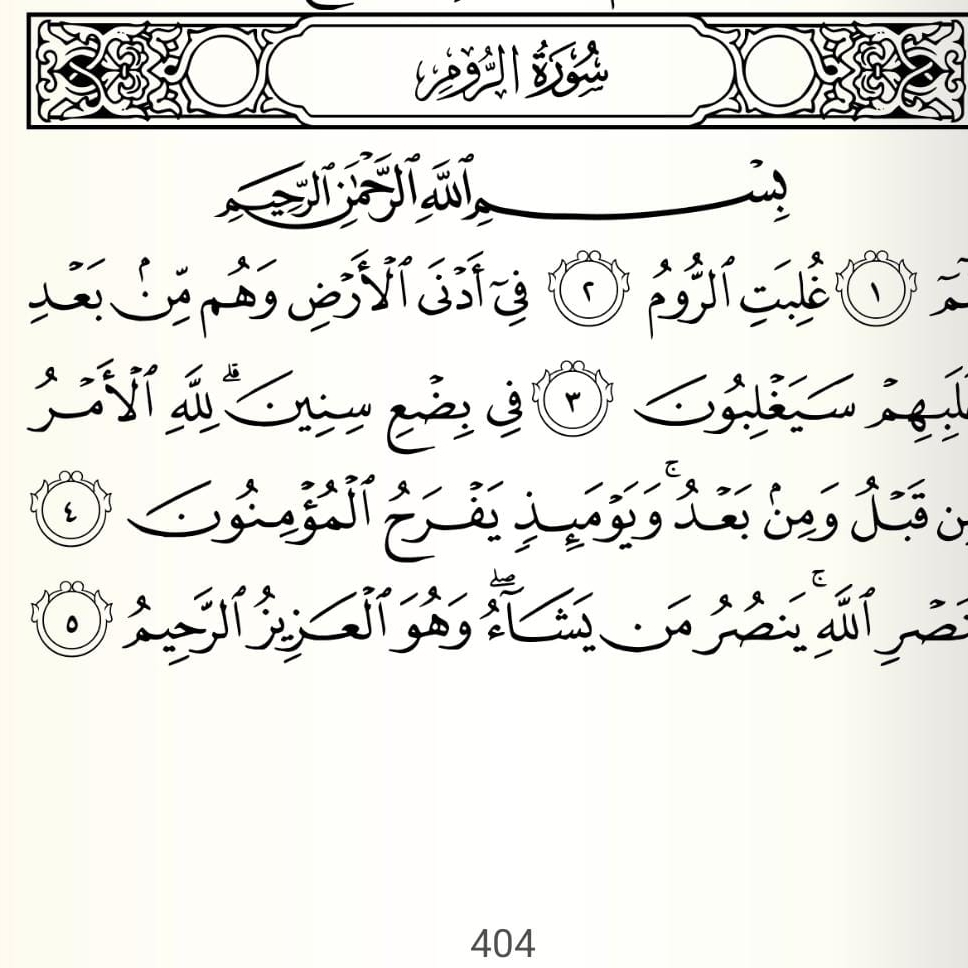 سُورَةُ الرُّومِ
بِسْمِ ٱللَّهِ ٱلرَّحْمَٰنِ ٱلرَّحِيمِ
١ غُلِبَتِ ٱلرُّومُ ٢ فِىٓ أَدْنَى ٱلْأَرْضِ وَهُم مِّنۢ بَعْدِ
سَيَغْلِبُونَ ٣ فِى بِضْعِ سِنِينَ ۗ لِلَّهِ ٱلْأَمْرُ
قَبْلُ وَمِنۢ بَعْدُ ۚ وَيَوْمَئِذٍ يَفْرَحُ ٱلْمُؤْمِنُونَ ٤
ٱللَّهِ ۚ يَنصُرُ مَن يَشَآءُ ۖ وَهُوَ ٱلْعَزِيزُ ٱلرَّحِيمُ ٥
404